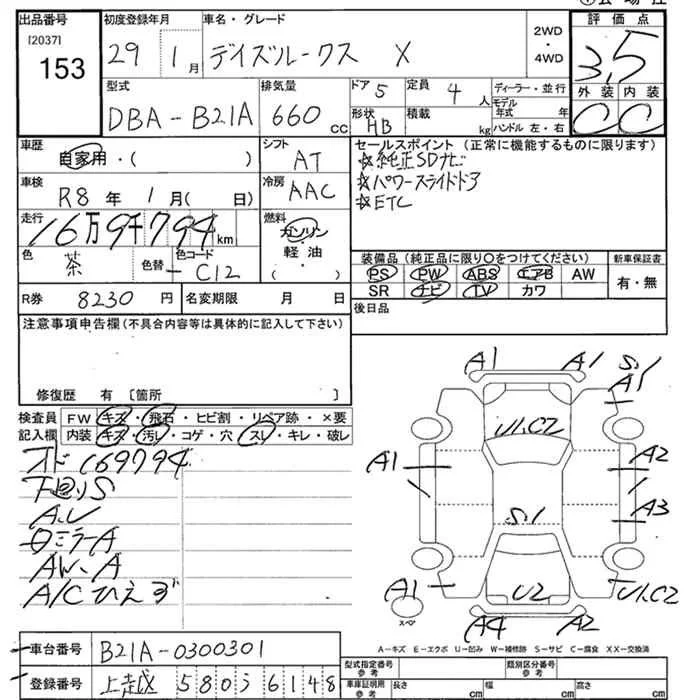 出品番号 初度登録年月 車名・グレード 2WD ・4WD 評価点
[2037] 153 29 1月 デイズルークス X 3,5
型式 排気量 ドア 5 定員 4人 ディーラー・並行 外装 内装
DBA-B21A 660cc 形状 HB 積載 kg モデル年式 年 ハンドル 左・右 C C
車歴 シフト セールスポイント (正常に機能するものに限ります)
自家用・( ) AT ☆純正SDナビ
車検 冷房 ☆パワースライドドア
R8年 1月( 日) AAC ☆ETC
走行 燃料
16万9千794km ガソリン・軽油・( )
色 茶 色替 - 色コード C12 装備品 (純正品に限り○をつけてください) 新車保証書
PS PW ABS エアB AW 有・無
R券 8230円 名変期限 月 日 SR ナビ TV カワ
注意事項申告欄 (不具合内容等は具体的に記入して下さい) 後日品
修復歴 有 〔箇所 〕
検査員 FW キズ・飛石・ヒビ割・リペア跡・×要
記入欄 内装 キズ・汚レ・コゲ・穴・スレ・キレ・破レ
オド169794
下回りS
A.U
ロミラーA
AW、A
A/Cひえず
A1 A1 S.1
A1
U1.C2
A1 A2
S.1 A3
A1 U2 U1.C2
スペア A4 A2
A-キズ E-エクボ U-凹み W-補修跡 S-サビ C-腐食 XX-交換済
車台番号 B21A-0300301
型式指定番号 参考 類別区分番号 参考
登録番号 上越 580 う 6148
車庫証明用 参考 長さ cm 幅 cm 高さ cm